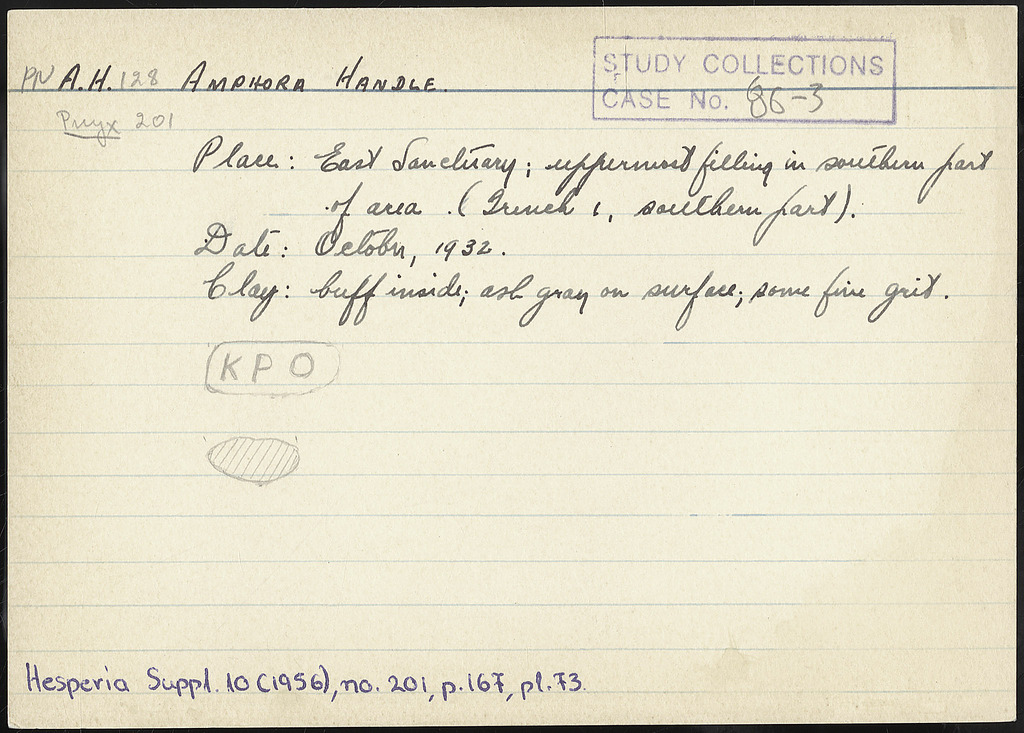 PN A.H. 128 AMPHORA HANDLE.
STUDY COLLECTIONS
CASE No. 86-3
Pnyx 201
Place: East Sanctuary; uppermost filling in southern part
of area. (Trench 1, southern part).
Date: October, 1932.
Clay: buff inside; ash gray on surface; some fine grit.
KPO
Hesperia Suppl. 10 (1956), no. 201, p. 167, pl. 73.